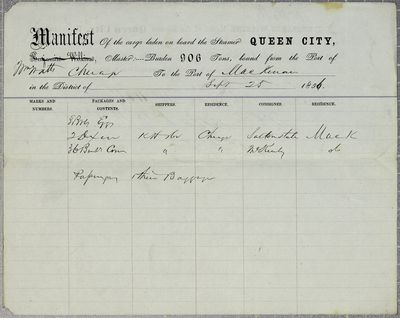 Manifest Of the cargo laden on board the Steamer QUEEN CITY,
Master Burden 906 Tons, bound from the Port of
Wm Watts Chicago To the Port of Mackinac
in the District of Sept 25 18
MARKS AND NUMBERS. PACKAGES AND CONTENTS. SHIPPERS. RESIDENCE. CONSIGNEE. RESIDENCE.
5 Bbls Eggs
2 Oxen Chicago Mack
36 Bush Corn " " do
Passengers & their Baggage